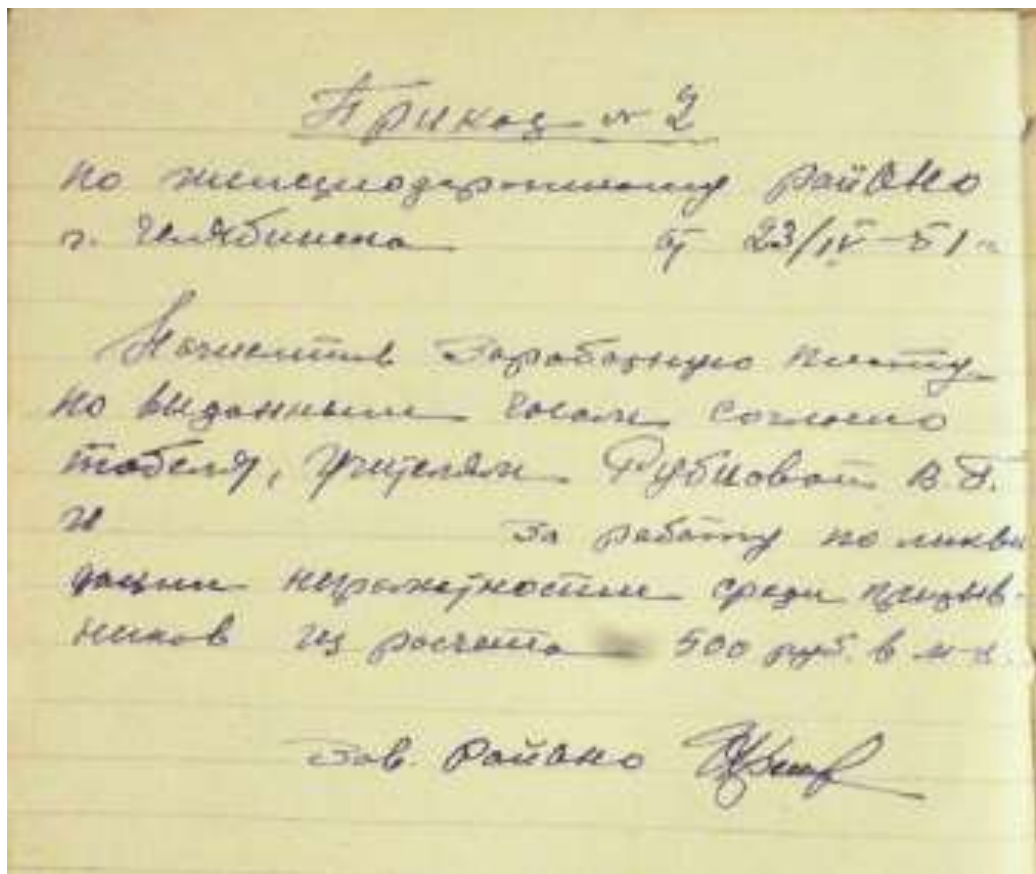 Приказ № 2
по железнодорожному районо
г. Челябинска от 23/IV-51 г.
Начислить заработную плату
по выданным часам согласно
табеля, учителям Рубцовой В. Г.
и за работу по ликви
дации неграмотности среди призыв-
ников из расчета 500 руб. в м-ц.
Зав. Районо